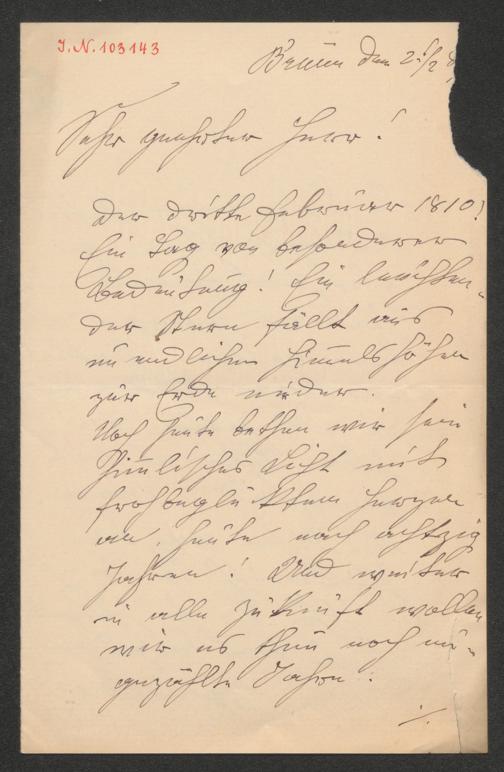 J.N. 103143
Brünn den 2./2
Sehr geehrter Herr!
Der dritte Februar 1810!
Ein Tag von besonderer
Bedeutung! Ein leuchten-
der Stern fällt aus
unendlichen Himmelshöhen
zur Erde nieder.
Noch heute bethen wir sein
himlisches Licht mit
frohbeglücktem Herzen
an, heute nach achtzig
Jahren! Und weiter
in alle Zukunft wollen
wir es thun noch un-
gezählte Jahre.
./.